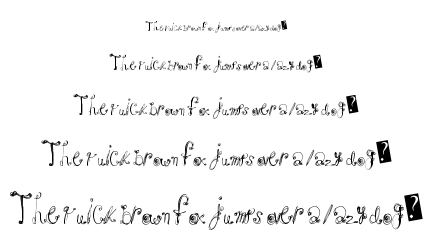 The ruick brown fox jumps over a/azy dog?
The ruick brown fox jumps over a/azy dog?
The ruick brown fox jumps over a/azy dog?
The ruick brown fox jumps over a/azy dog?
The ruick brown fox jumps over a/azy dog?